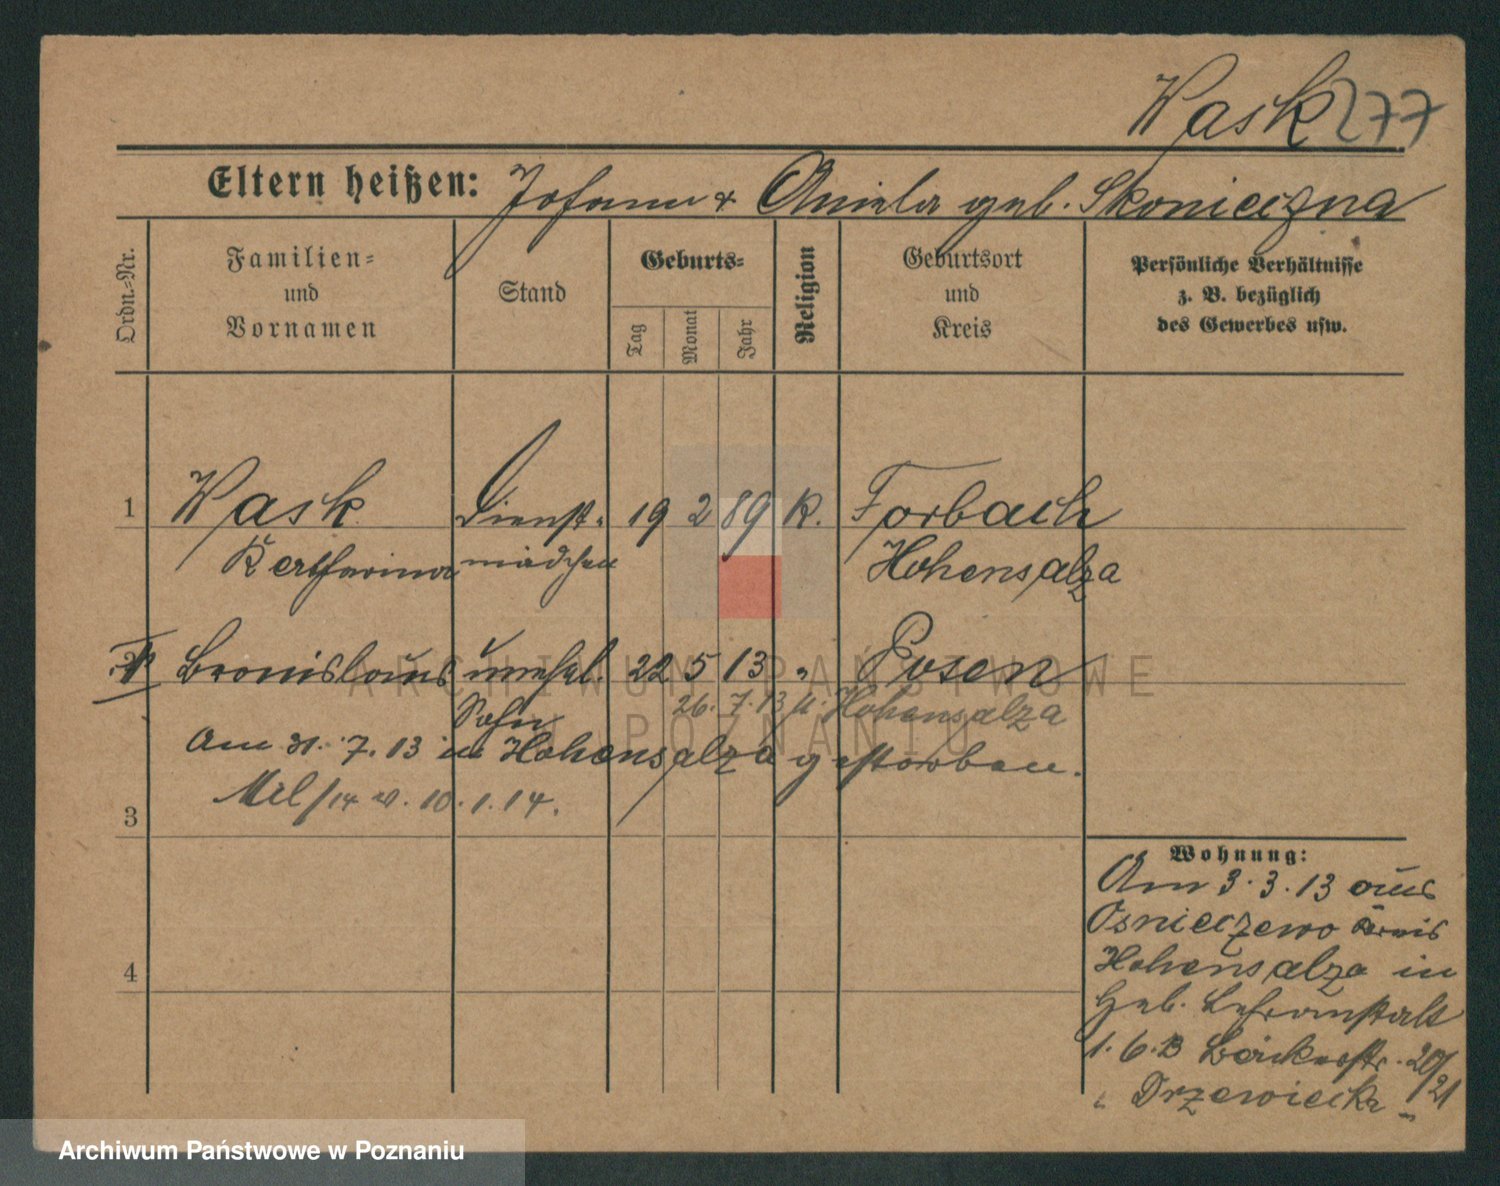 Wask 277
Eltern heißen: Johann & Aniela geb. Skonieczna
Ordn.=Nr.
Familien=
und
Vornamen
Stand
Geburts=
Tag
Monat
Jahr
Religion
Geburtsort
und
Kreis
Persönliche Verhältnisse
z. B. bezüglich
des Gewerbes usw.
1 Wask Dienst- 19 2 89 K. Forbach
Katharina mädchen Hohensalza
Bronislaus unehel. 22 5 13 " Posen
Sohn 26. 7. 13 n. Hohensalza
Am 31. 7. 13 in Hohensalza gestorben.
14 v. 10. 1. 14.
3
4
Wohnung:
Am 3. 3. 13 aus
Osnieczewo Kreis
Hohensalza in
Heb. Lehranstalt
1. 6. 13 Bäckerstr. 20/21
" Drzewiecki "
ARCHIWUM PAŃSTWOWE
W POZNANIU
Archiwum Państwowe w Poznaniu